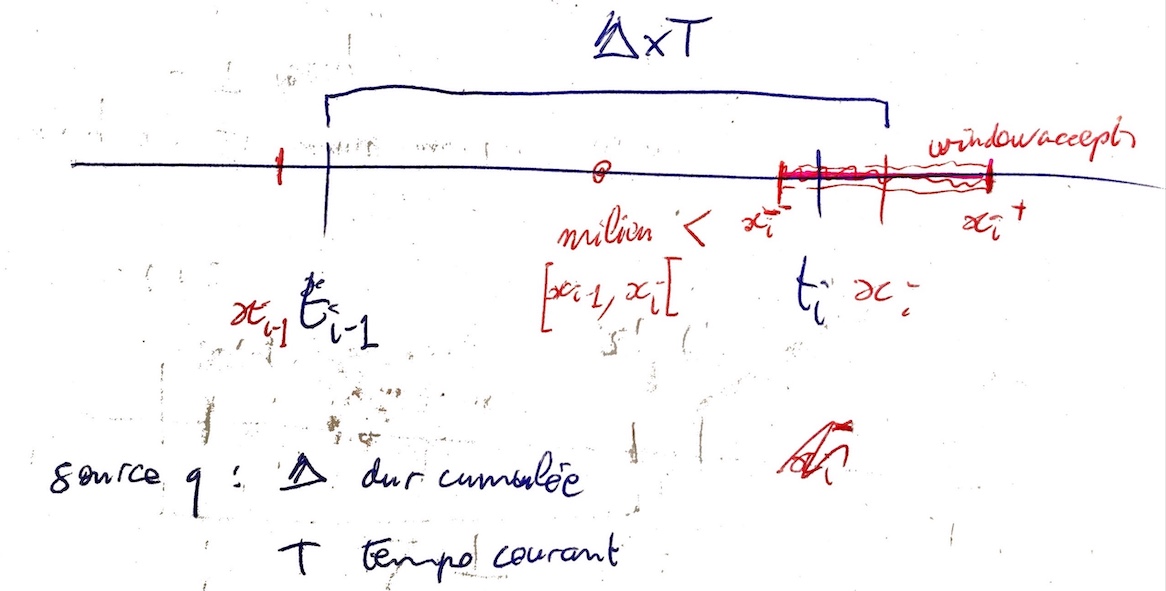 Δ x T
window accept
milieu < xᵢ⁻ xᵢ⁺
[xᵢ₋₁, xᵢ[
xᵢ₋₁ tᵢ₋₁ tᵢ xᵢ
source q : Δ dur cumulée
T tempo courant